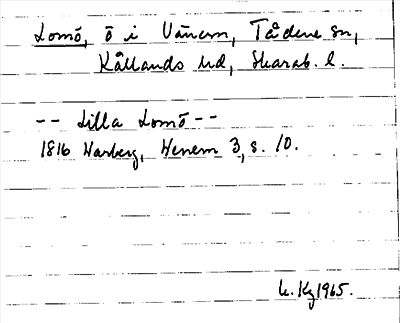 Lomö, ö i Vänern, Tådene sn,
Kållands hd, Skarab. l.
-- Lilla Lomö --
1816 Warberg, Wenern 3, s. 10.
1965.